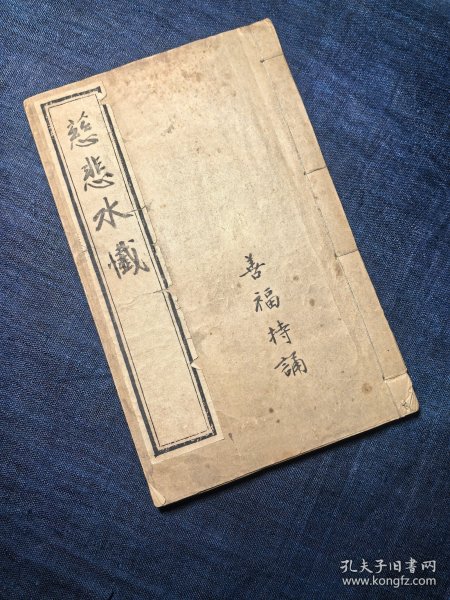 慈悲水懺
善福持誦
孔夫子旧书网
www.kongfz.com